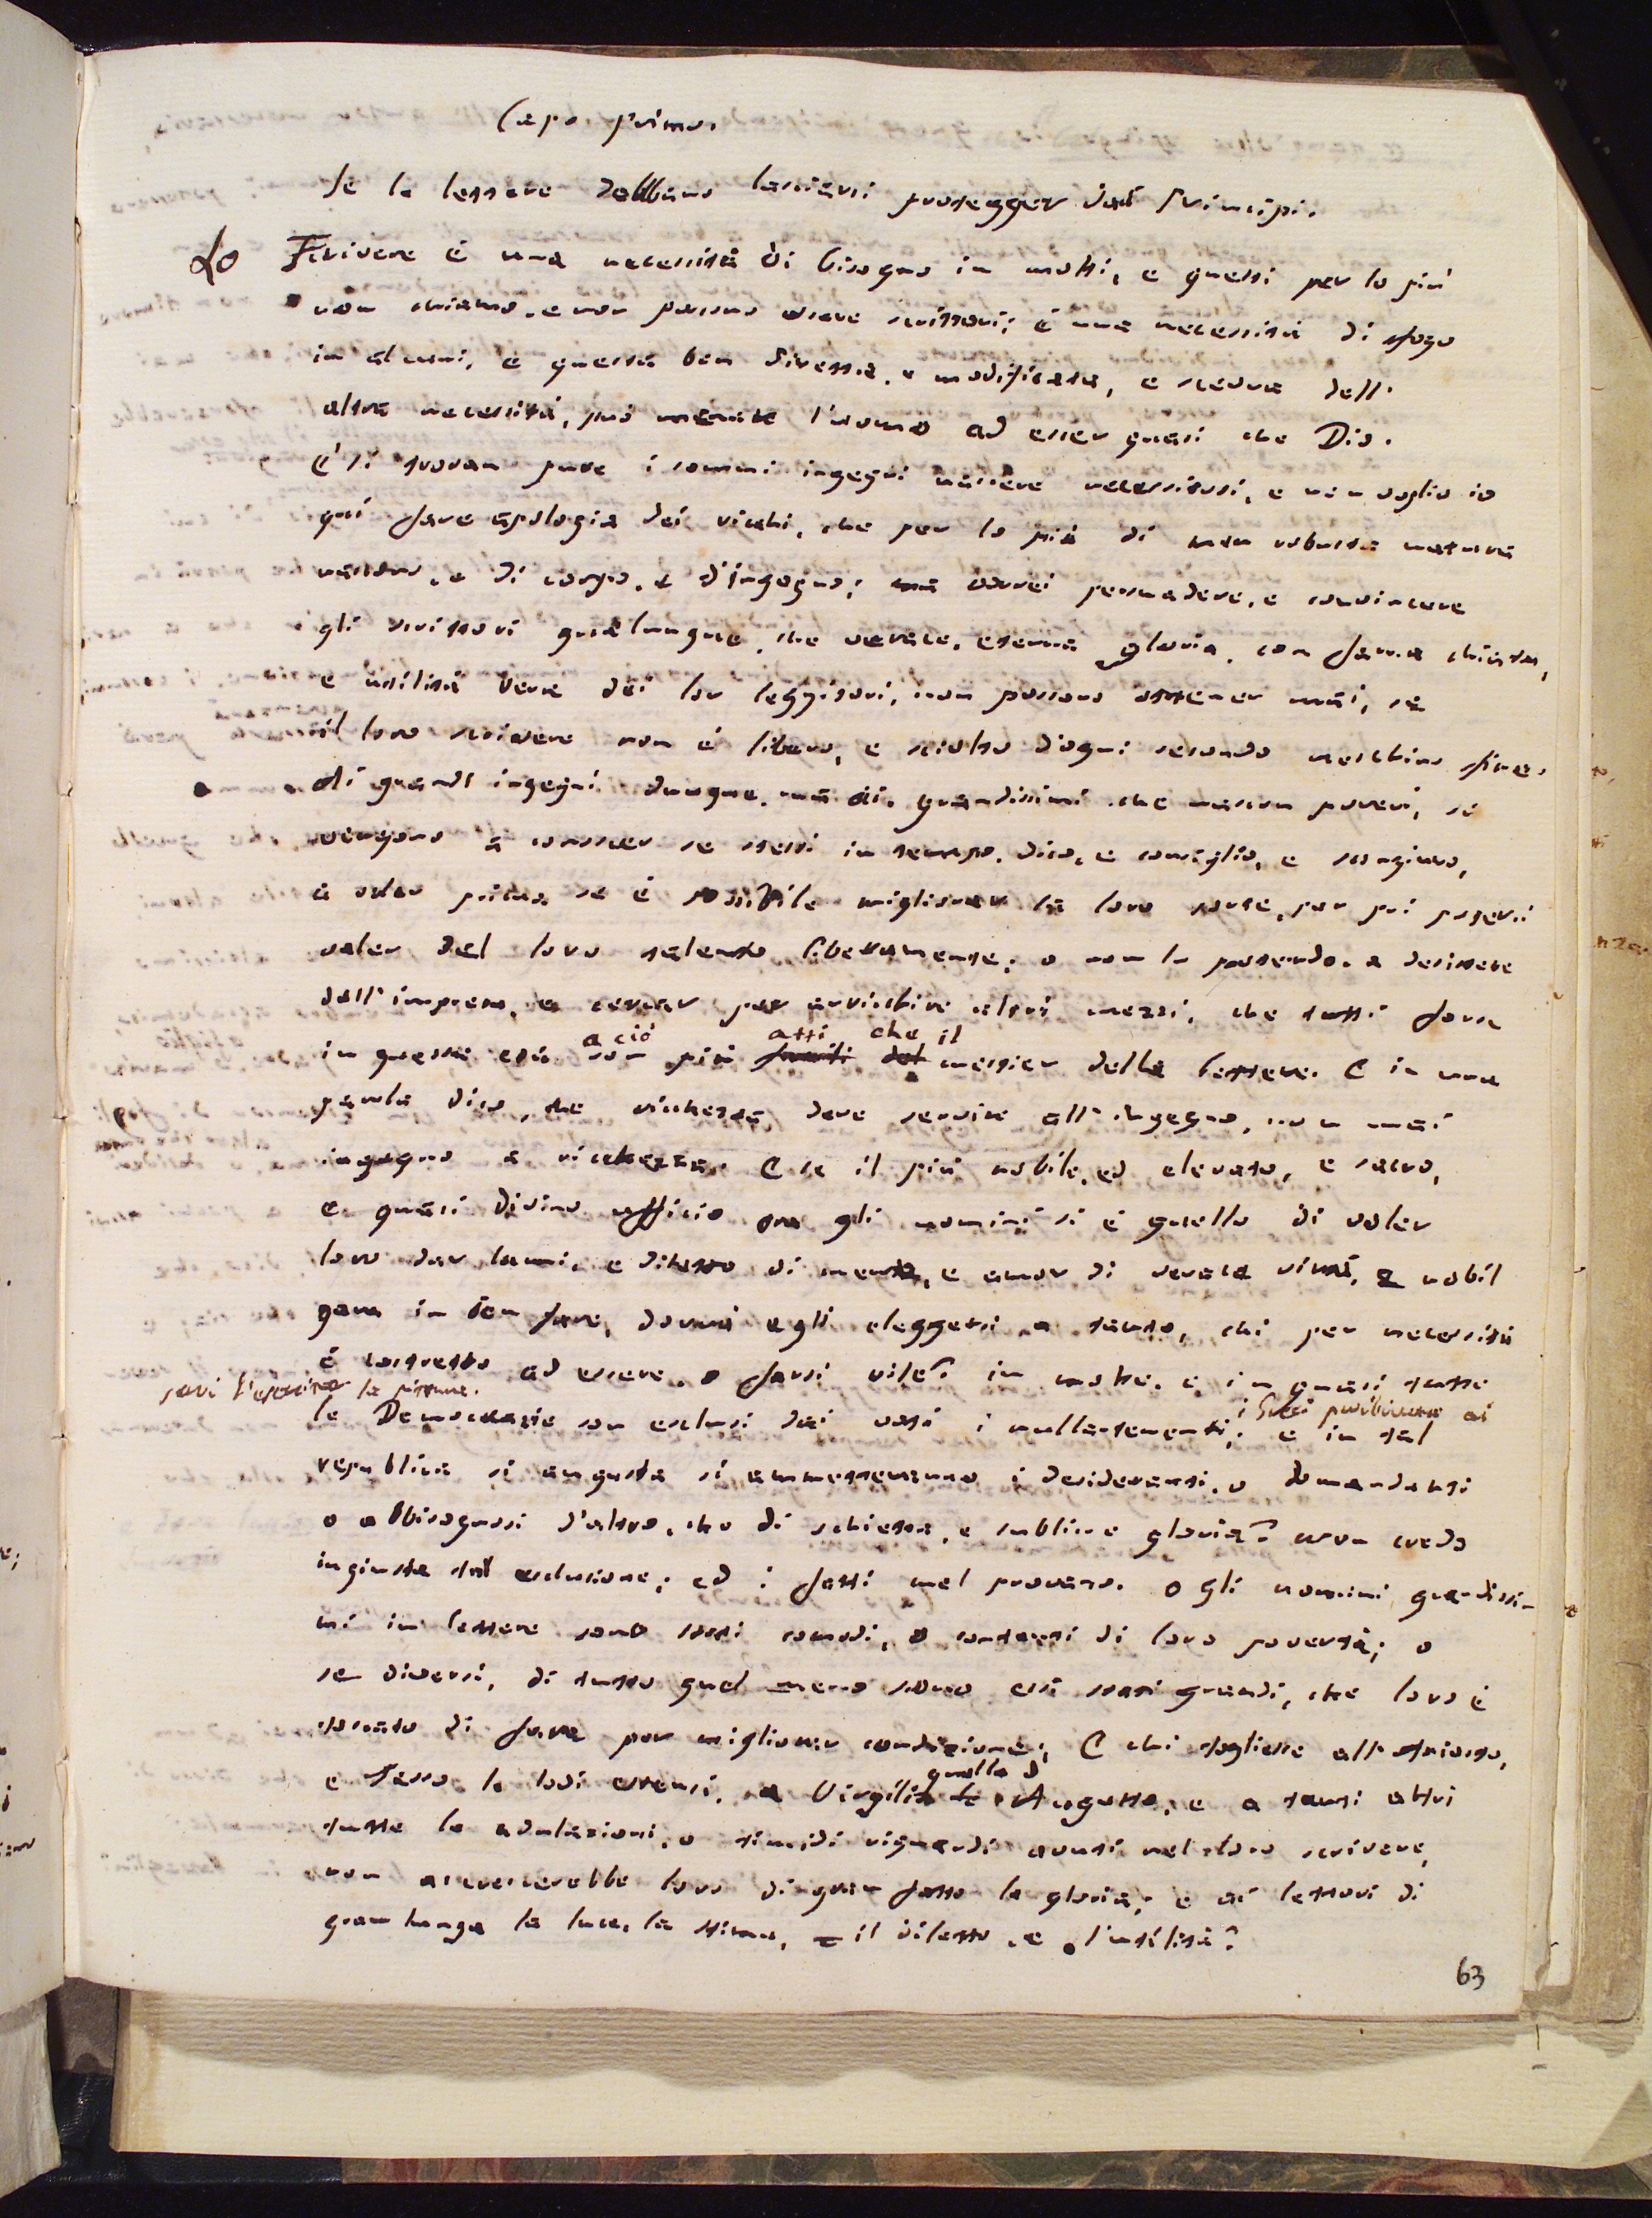 Capo primo.
Se le lettere debbano lasciarsi protegger dai Principi.
Lo Scrivere è una necessità di bisogno in molti, e questi per lo più
non chiamo, e non possono essere scrittori; è una necessità di sfogo
in alcuni, e questa ben diretta, e modificata, e scevra dell'
altra necessità, può menare l'uomo ad esser quasi che Dio.
E' si trovan pure i sommi ingegni nascere necessitosi, e non voglio io
quì fare apologia dei ricchi, che per lo più di men robusta natura
nascono, e di corpo, e d'ingegno; ma vorrei persuadere, e convincere
gli scrittori qualunque, che verace, eterna gloria, con fama chiara,
e utilità vera dei lor leggitori, non possono ottener mai, se
il loro scrivere non è libero, e sciolto d'ogni secondo meschino fine.
Ai grandi ingegni dunque, ma ai grandissimi che nascon poveri, se
vengono a conoscer se stessi in tempo, dico, e consiglio, e scongiuro,
a veder prima se è possibile migliorar la loro sorte, per poi potersi
valer del loro talento liberamente; o non lo potendo, a desistere
dall'impresa, e cercar per arricchire altri mezzi, che tutti forse
a ciò atti che il
in questa età son più favoriti del mestier delle lettere. E in una
parola dico, che ricchezza deve servire all'ingegno, non mai
ingegno a ricchezza. E se il più nobile, ed elevato, e sacro,
e quasi divino officio tra gli uomini si è quello di voler
loro dar lumi, e diletto di mente, e amor di verace virtù, e nobil
gara in ben fare, dovrà egli eleggersi a tanto, chi per necessità
è costretto ad essere, o farsi vile? in molte, e in quasi tutte
i Greci proibivano ai
servi l'esercitar la pittura.
le Democrazie son esclusi dai voti i nullatenenti; e in tal
republica sì augusta si ammetteranno i desideranti, o domandanti
o abbisognosi d'altro, che di schietta, e sublime gloria? non credo
ingiusta tal esclusione; ed i fatti mel provano. O gli uomini grandissi-
mi in lettere sono stati comodi, o contenti di loro povertà; o
se diversi, di tutto quel meno sono essi stati grandi, che loro è
toccato di fare per migliorar condizione; E chi togliesse all'Ariosto,
quelle d'
e Tasso le lodi estensi, a Virgilio le Augusto, e a tanti altri
tutte le adulazioni, o timidi riguardi avuti nel loro scrivere,
non accrescerebbe loro di gran fatto la gloria; e ai lettori di
gran lunga la luce, la stima, e il diletto, e l'utilità?
63